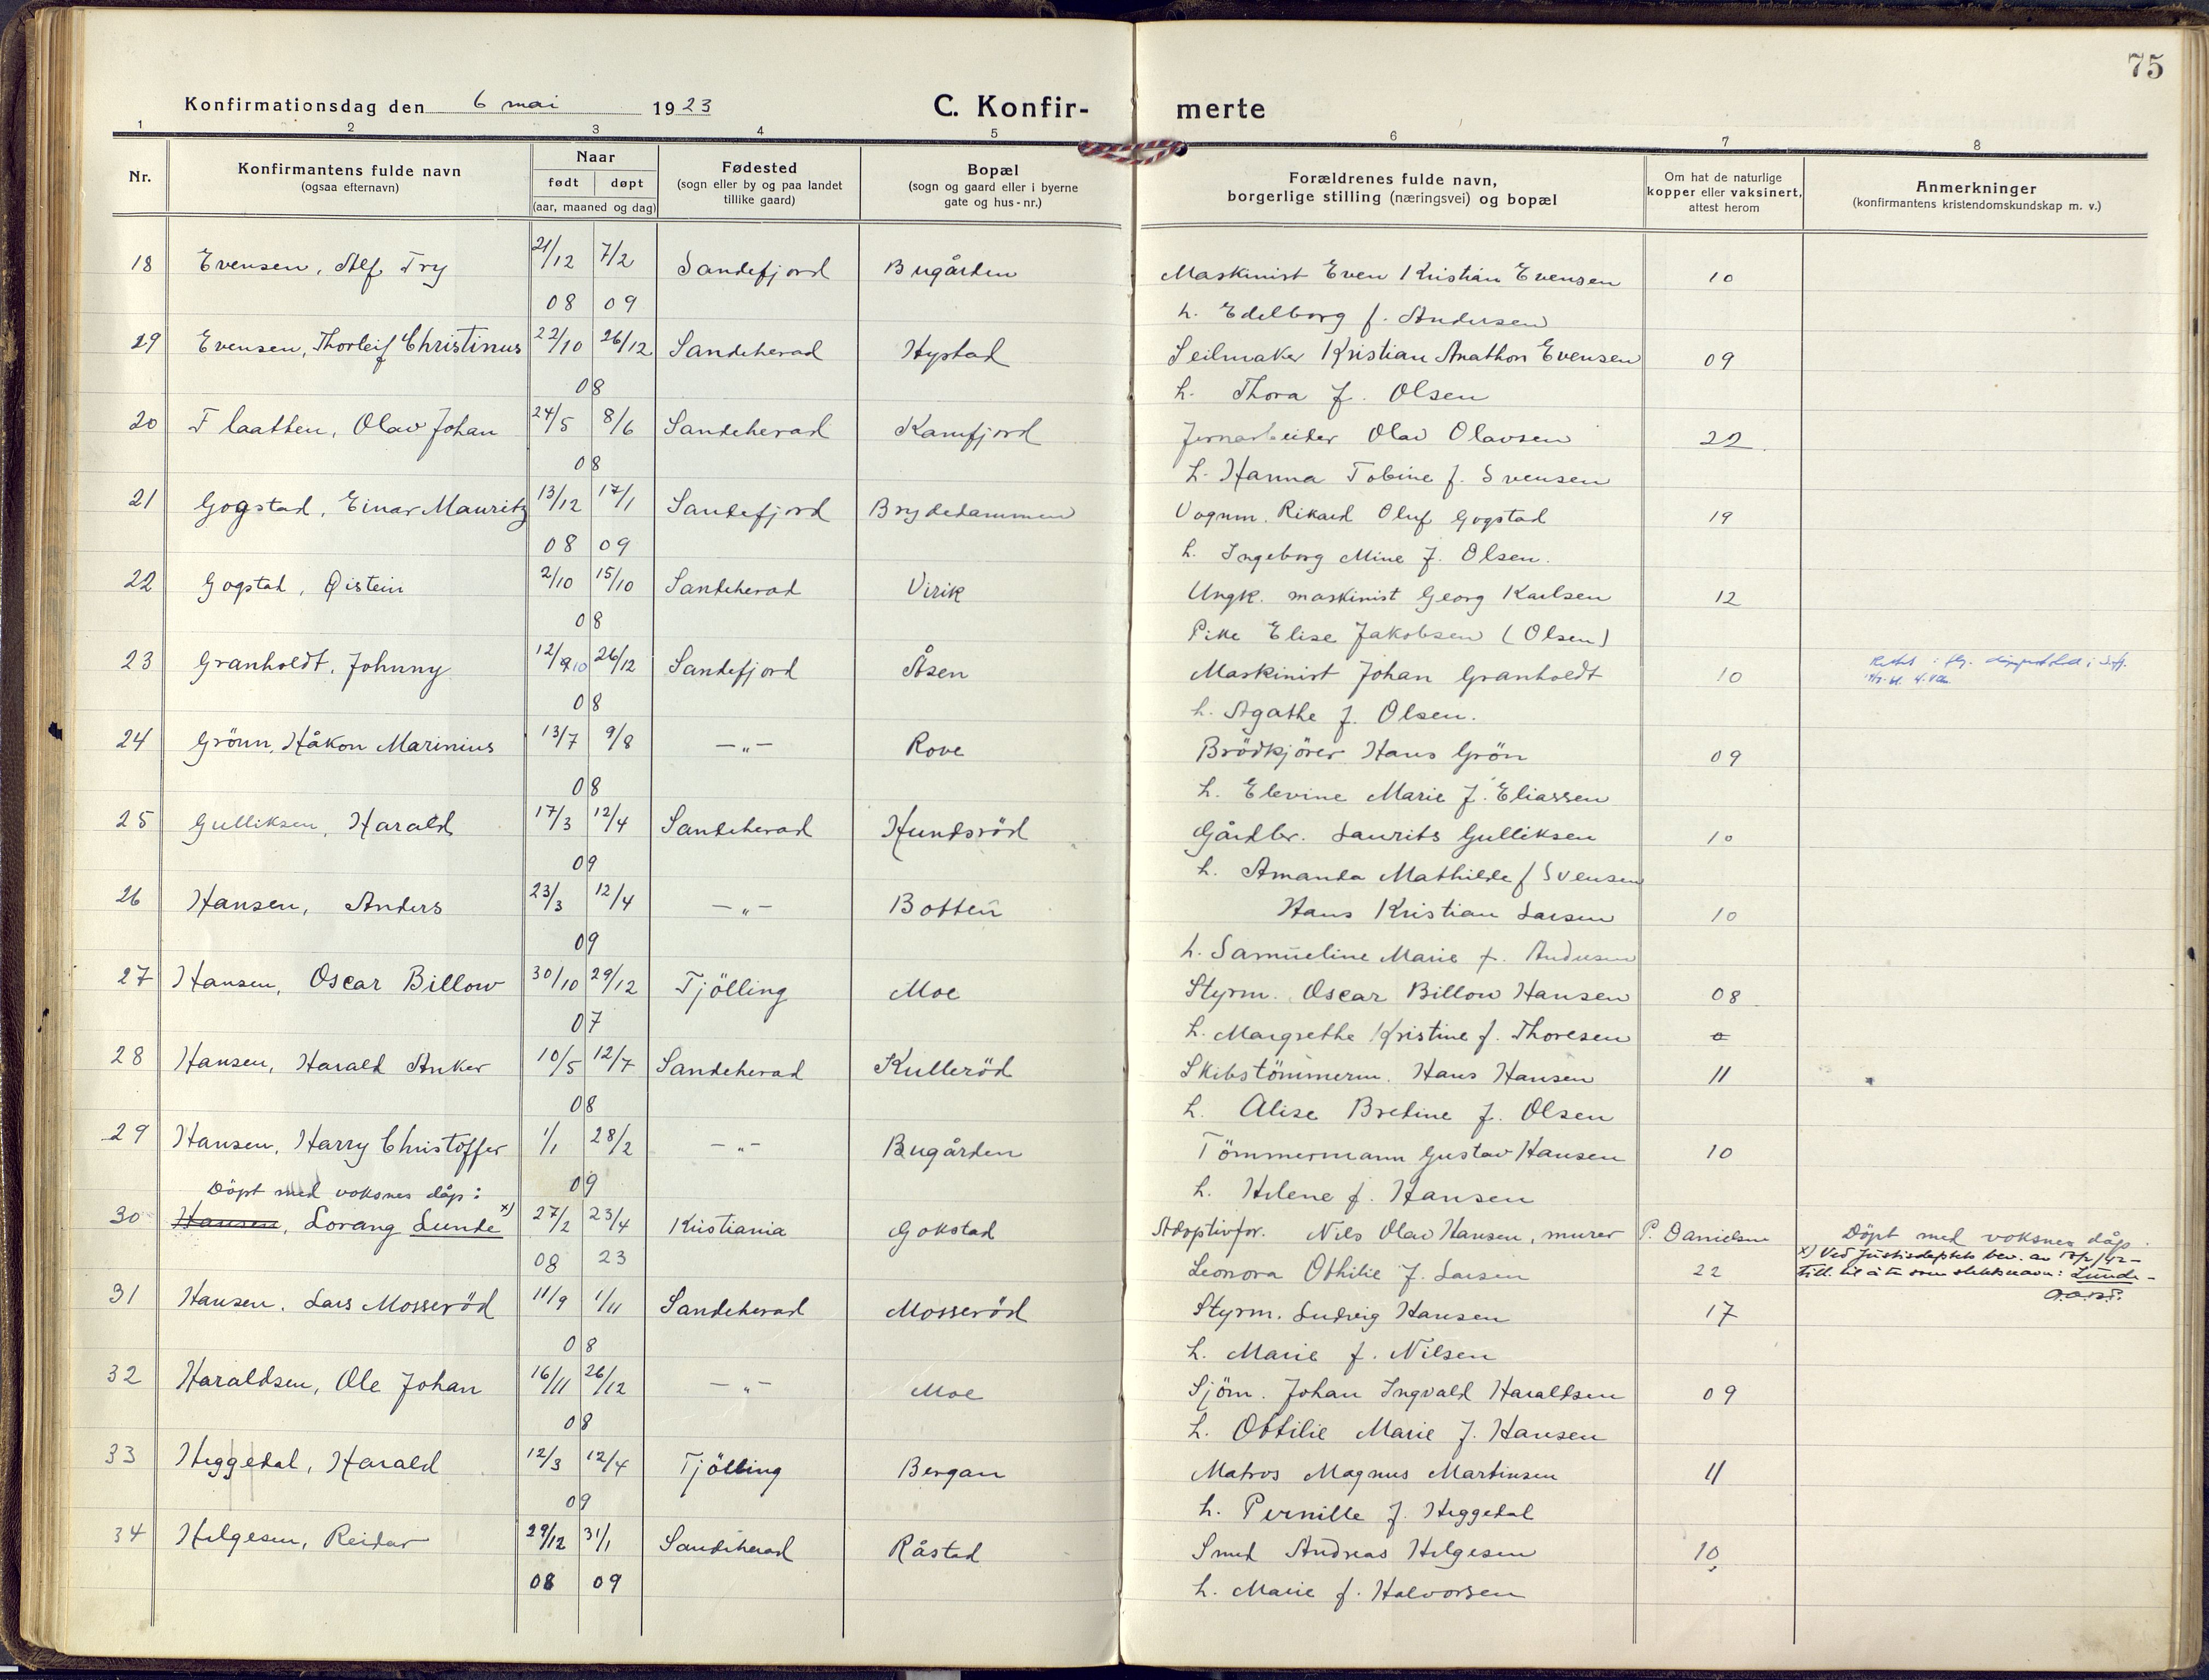 75
Konfirmationsdag den 6 mai 1923 C. Konfir- merte
1 2 3 4 5 6 7 8
Nr. Konfirmantens fulde navn (ogsaa efternavn) Naar født døpt (aar, maaned og dag) Fødested (sogn eller by og paa landet tillike gaard) Bopæl (sogn og gaard eller i byerne gate og hus-nr.) Forældrenes fulde navn, borgerlige stilling (næringsvei) og bopæl Om hat de naturlige kopper eller vaksinert, attest herom Anmerkninger (konfirmantens kristendomskundskap m. v.)
18 Evensen, Alf Try 21/12 7/2 Sandefjord Bugården Maskinist Even Kristian Evensen 10
08 09 h. Edelborg f. Andersen
29 Evensen, Thorleif Christinus 22/10 26/12 Sandeherad Hystad Seilmaker Kristian Anathon Evensen 09
08 h. Thora f. Olsen
20 Flaatten, Olav Johan 24/5 8/6 Sandeherad Kamfjord Jernarbeider Olav Olavsen 22
08 h. Hanna Tobine f. Svensen
21 Gogstad, Einar Mauritz 13/12 17/1 Sandefjord Brydedammen Vognm. Rikard Oluf Gogstad 19
08 09 h. Ingeborg Mine f. Olsen.
22 Gogstad, Øistein 2/10 15/10 Sandeherad Virik Ungk. maskinist Georg Karlsen 12
08 Pike Elise Jakobsen (Olsen)
23 Granholdt, Johnny 12/9 10 26/12 Sandefjord Åsen Maskinist Johan Granholdt 10
08 h. Agathe f. Olsen.
24 Grönn, Håkon Marinius 13/7 9/8 —„— Rove Brödkjörer Hans Grön 09
08 h. Elevine Marie f. Eliassen
25 Gulliksen, Harald 17/3 12/4 Sandeherad Hundsröd Gårdbr. Laurits Gulliksen 10
09 h. Amanda Mathilde f Svensen
26 Hansen, Anders 23/3 12/4 —„— Botten Hans Kristian Larsen 10
09 h. Samueline Marie f. Andersen
27 Hansen, Oscar Billow 30/10 29/12 Tjölling Moe Styrm. Oscar Billow Hansen 08
07 h. Margrethe Kristine f. Thoresen
28 Hansen, Harald Anker 10/5 12/7 Sandeherad Kulleröd Skibstömmerm. Hans Hansen 11
08 h. Alise Bretine f. Olsen
29 Hansen, Harry Christoffer 1/1 28/2 —„— Bugården Tömmermann Gustav Hansen 10
Döpt med voksnes dåp: 09 h. Helene f. Hansen
30 Hansen, Lorang Lunde x) 27/2 23/4 Kristiania Gokstad Adoptivfor. Nils Olav Hansen, murer P. Danielsen Döpt med voksnes dåp.
08 23 Leonora Othilie f. Larsen 22 x) Ved Justisdeptets bev. av
till. til å ta som slektsnavn: Lunde -
31 Hansen. Lars Mosseröd 11/9 1/11 Sandeherad Mosseröd Styrm. Ludvig Hansen 17
08 h. Marie f. Nilsen
32 Haraldsen, Ole Johan 16/11 26/12 —„— Moe Sjöm. Johan Ingvald Haraldsen 09
08 h. Othilie Marie f. Hansen
33 Heggedal, Harald 12/3 12/4 Tjölling Bergan Matros Magnus Martinsen 11
09 h. Pernille f. Heggedal
34 Helgesen, Reidar 29/12 31/1 Sandeherad Råstad Smed Andreas Helgesen 10
08 09 h. Marie f. Halvorsen